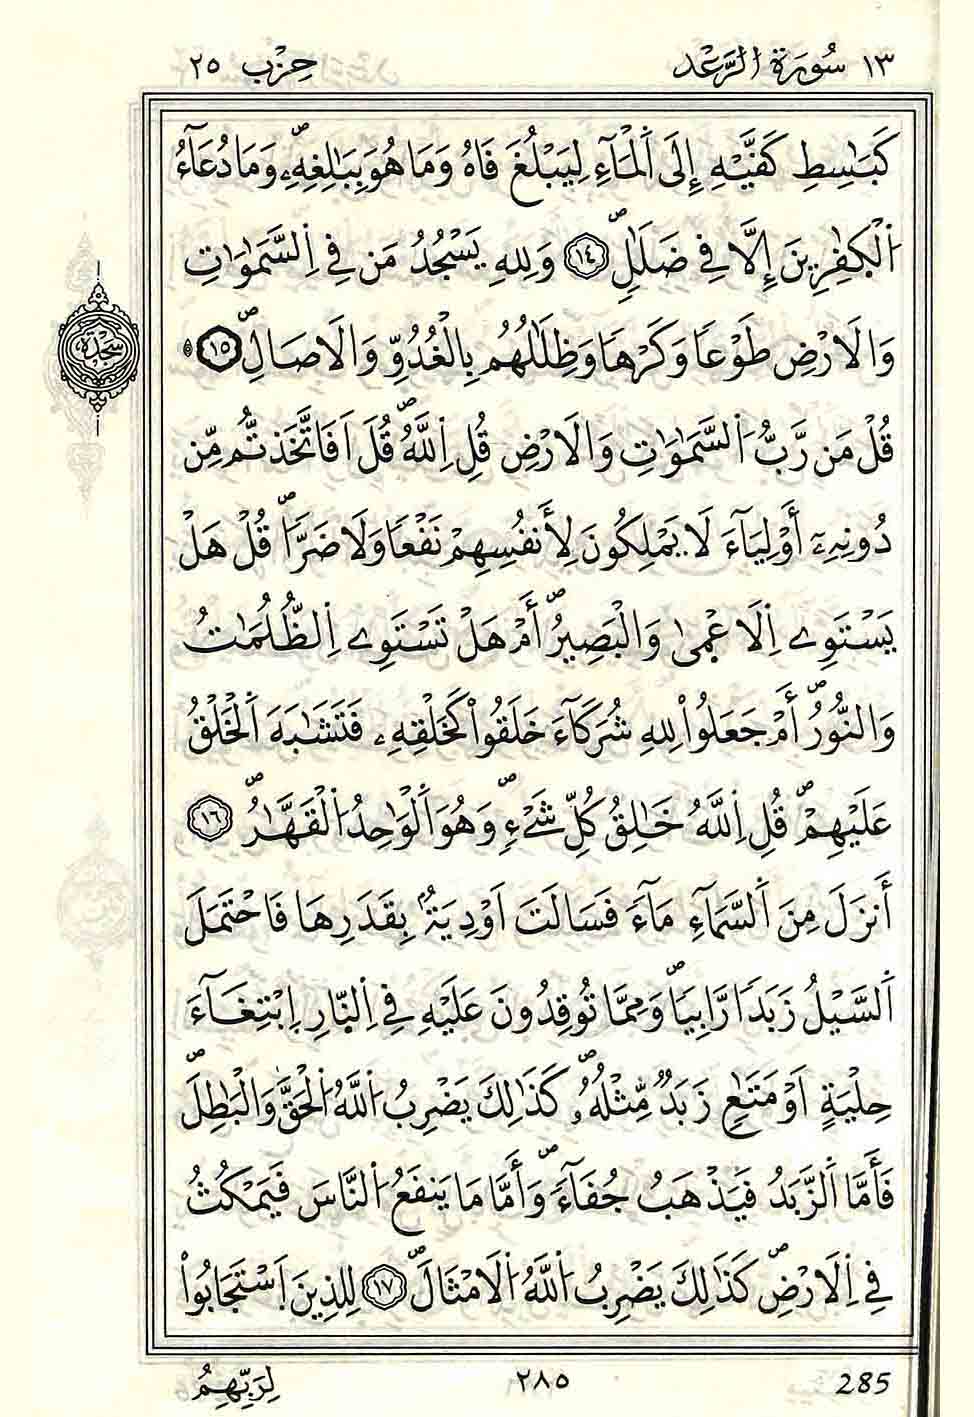 ١٣ سُورَةُ الرَّعْدِ
حِزْبُ ٢٥
كَبَٰسِطِ كَفَّيْهِ إِلَى اَ۬لْمَآءِ لِيَبْلُغَ فَاهُ وَمَا هُوَ بِبَٰلِغِهِۦۖ وَمَا دُعَآءُ
اُ۬لْكٰ۪فِرِينَ إِلَّا فِے ضَلَٰلٖۖ ١٤ وَلِلهِ يَسْجُدُ مَن فِے اِ۬لسَّمَٰوَٰتِ
وَالَارْضِ طَوْعاٗ وَكَرْهاٗ وَظِلَٰلُهُم بِالْغُدُوِّ وَالَاصَالِۖ ١٥
سَجْدَة
قُلْ مَن رَّبُّ اُ۬لسَّمَٰوَٰتِ وَالَارْضِ قُلِ اِ۬للَّهُۖ قُلَ اَفَاتَّخَذتُّم مِّن
دُونِهِۦٓ أَوْلِيَآءَ لَا يَمْلِكُونَ لِأَنفُسِهِمْ نَفْعاٗ وَلَا ضَرّاٗۖ قُلْ هَلْ
يَسْتَوِے اِ۬لَاعْم۪ىٰ وَالْبَصِيرُۖ أَمْ هَلْ تَسْتَوِے اِ۬لظُّلُمَٰتُ
وَالنُّورُۖ أَمْ جَعَلُواْ لِلهِ شُرَكَآءَ خَلَقُواْ كَخَلْقِهِۦ فَتَشَٰبَهَ اَ۬لْخَلْقُ
عَلَيْهِمْۖ قُلِ اِ۬للَّهُ خَٰلِقُ كُلِّ شَےْءٖۖ وَهُوَ اَ۬لْوَٰحِدُ اُ۬لْقَهَّٰرُۖ ١٦
أَنزَلَ مِنَ اَ۬لسَّمَآءِ مَآءٗ فَسَالَتَ اَوْدِيَةُۢ بِقَدَرِهَا فَاحْتَمَلَ
اَ۬لسَّيْلُ زَبَداٗ رَّابِياٗۖ وَمِمَّا تُوقِدُونَ عَلَيْهِ فِے اِ۬لنّ۪ارِ اِ۪بْتِغَآءَ
حِلْيَةٍ اَوْ مَتَٰعٖ زَبَدٞ مِّثْلُهُۥۖ كَذَٰلِكَ يَضْرِبُ اُ۬للَّهُ اُ۬لْحَقَّ وَالْبَٰطِلَۖ
فَأَمَّا اَ۬لزَّبَدُ فَيَذْهَبُ جُفَآءٗۖ وَأَمَّا مَا يَنفَعُ اُ۬لنَّاسَ فَيَمْكُثُ
فِے اِ۬لَارْضِۖ كَذَٰلِكَ يَضْرِبُ اُ۬للَّهُ اُ۬لَامْثَالَۖ ١٧ لِلذِينَ اَ۪سْتَجَابُواْ
لِرَبِّهِمُ
٢٨٥
285